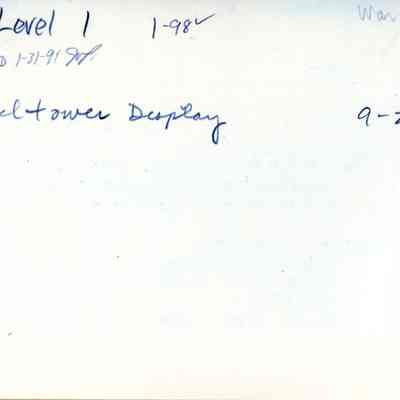 Level 1 1-98✓ War
D 1-31-91
ltower Display 9-2